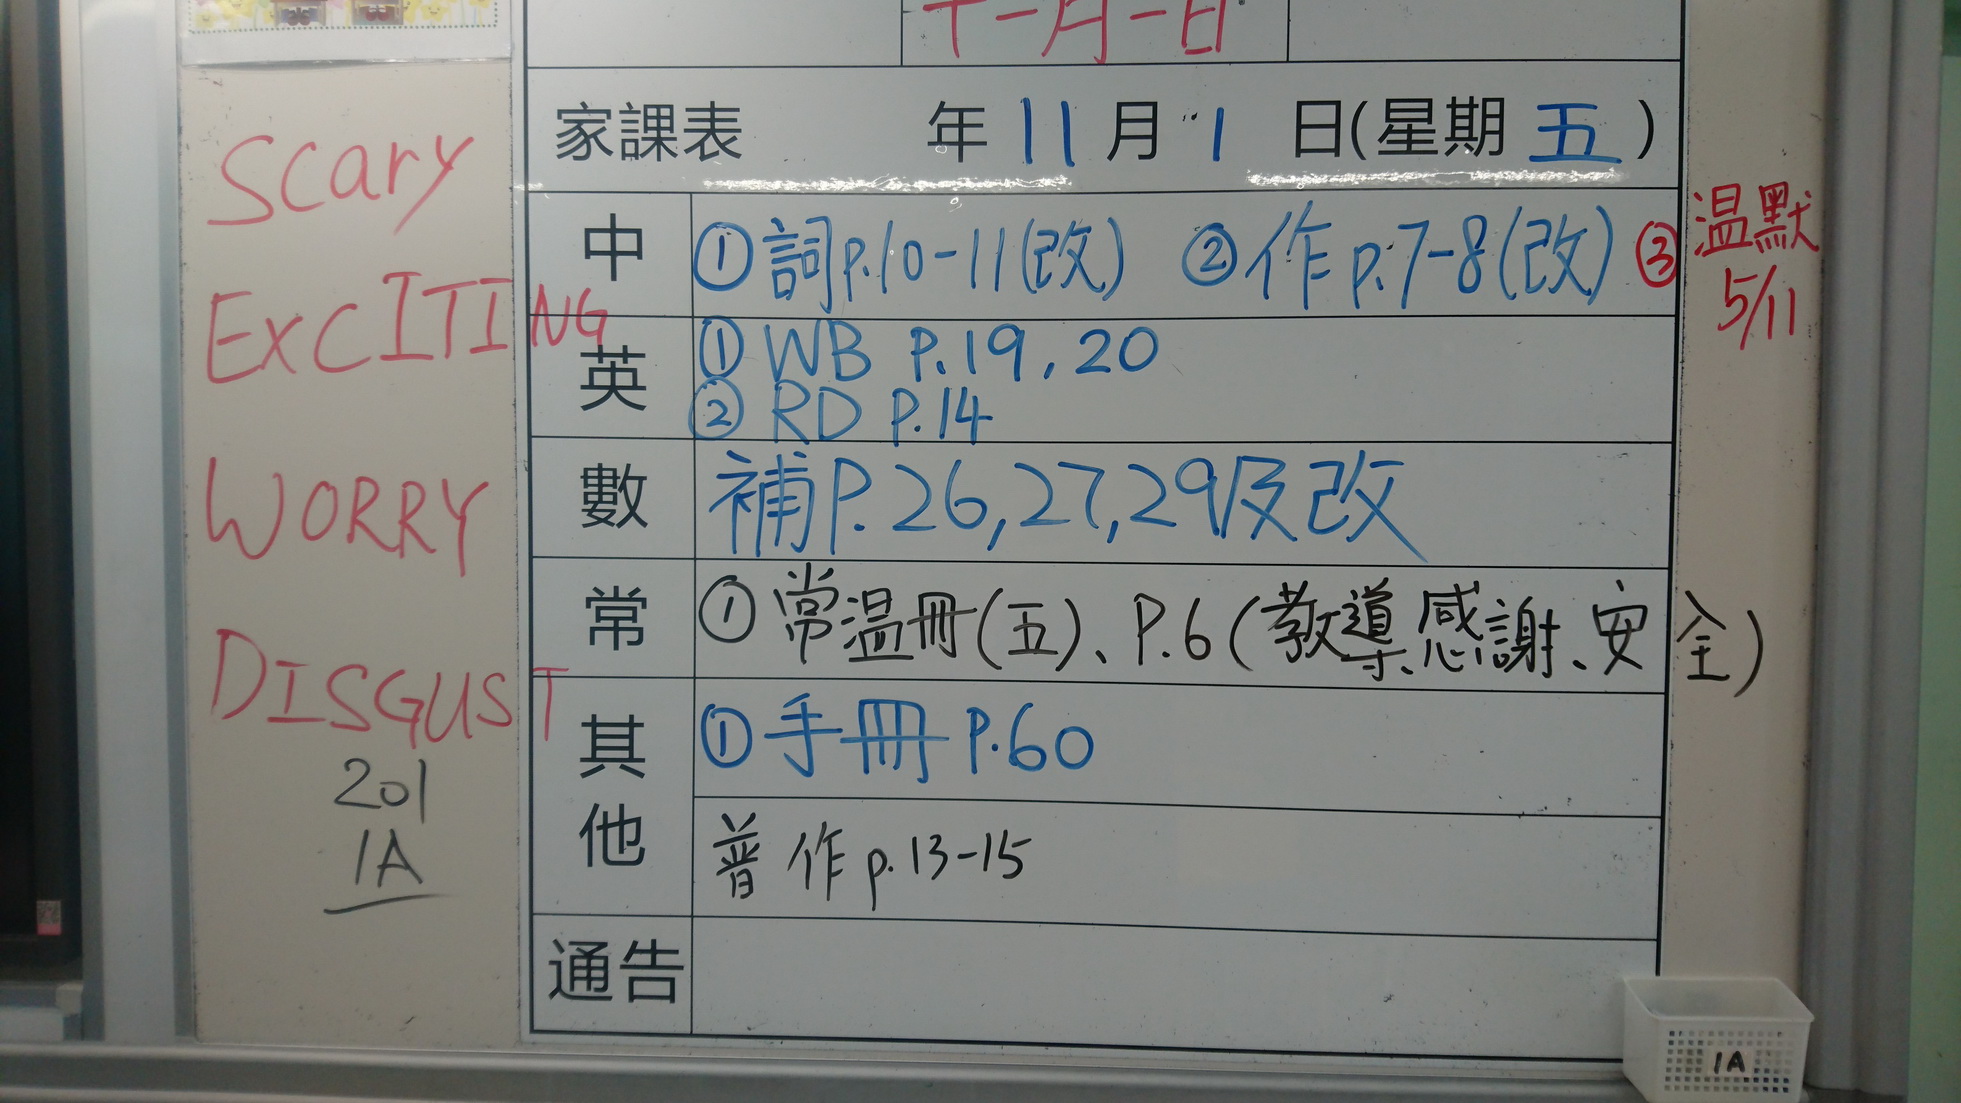 十一月一日
家課表 年 11 月 1 日(星期 五)
中 ① 詞p.10-11(改) ② 作p.7-8(改) ③ 温默 5/11
英 ① WB P.19,20
② RD P.14
數 補P.26,27,29及改
常 ① 常温冊(五)、P.6(教導、感謝、安全)
其他 ① 手冊 P.60
普作p.13-15
通告
Scary
EXCITING
WORRY
DISGUST
201
1A
1A